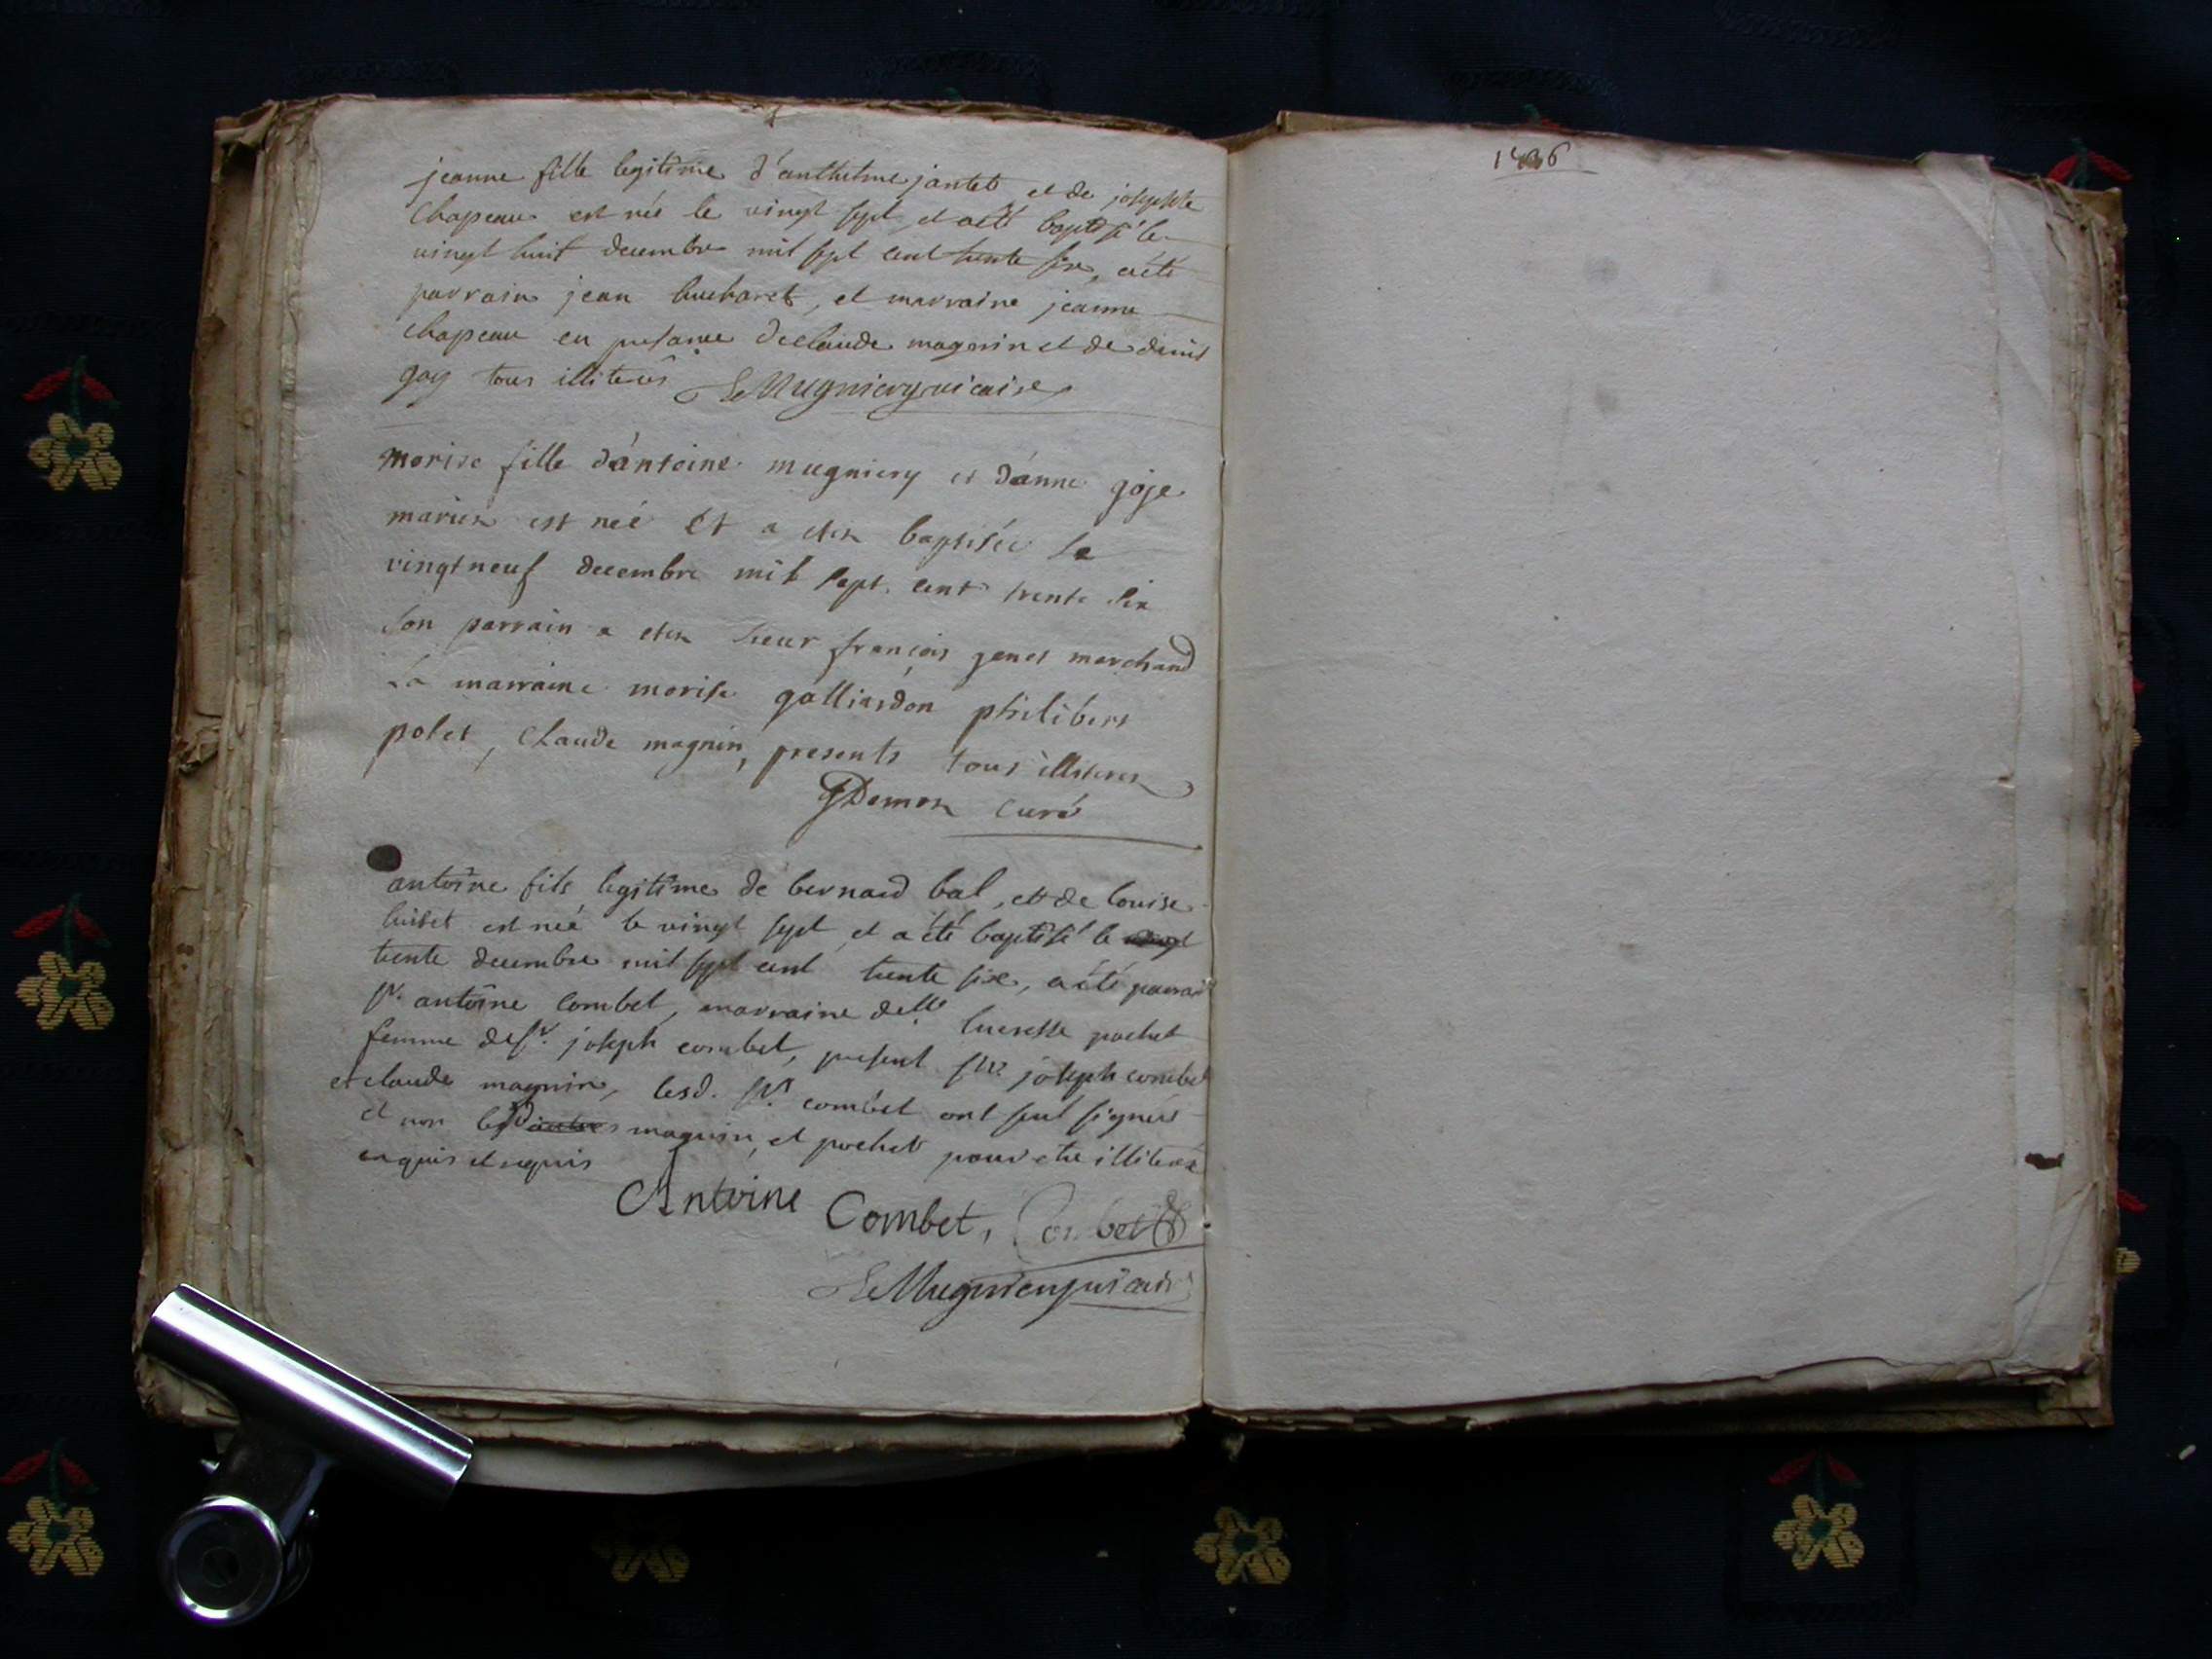 jeanne fille legitime d'anthelme jantet et de josephte
Chapeau est née le vingt sept et a été baptisé le
vingt huit decembre mil sept cent trente six, a été
parrain jean bucharet, et marraine jeanne
chapeau en presance de claude magnin et de denis
goy tous illiterés
LeMugniery vicaire
morise fille d'antoine mugniery et d'anne goje
mariez est neé et a etez baptisée le
vingt neuf decembre mil sept cent trente six
son parrain a etez sieur françois genet marchand
La marraine morise galliardon philibert
polet, claude magnin, presents tous illiterez
GDemoz curé
antoine fils legitime de bernard bal, et de louise
buibet est neé le vingt sept et a été baptisé le vingt
trente decembre mil sept cent trente six, a été parrain
sr. antoine Combet, marraine delle. lucresse pochet
femme de sr. joseph combet, present sr. joseph combet
et claude magnin, lesd. srs. combet ont seul signés
et non lesd autres magnin, et pochet pour etre illiteré
enquis et requis
Antoine Combet, Combet
LeMugniery vicaire
1736